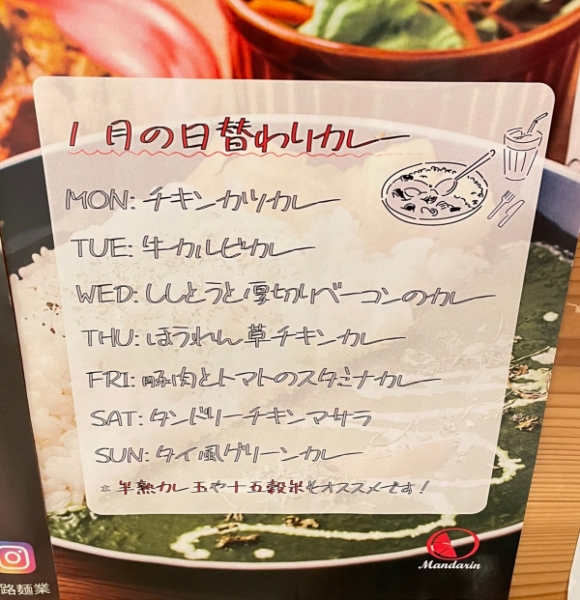 1月の日替わりカレー
MON: チキンカツカレー
TUE: 牛カルビカレー
WED: ししとうと厚切りベーコンのカレー
THU: ほうれん草チキンカレー
FRI: 豚肉とトマトのスタミナカレー
SAT: タンドリーチキンマサラ
SUN: タイ風グリーンカレー
☆半熟カレ玉や十五穀米もオススメです！
Mandarin
路麺業